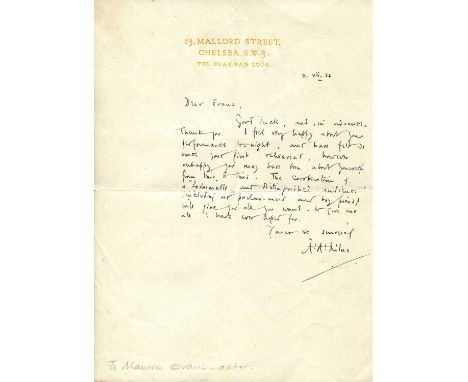 13, MALLORD STREET,
CHELSEA, S.W.3.
TEL. FLAXMAN 2074.
Dear Evans,
Good luck, and, in advance,
Thank you. I feel very happy about your
performance to-night, and have felt so
since your first rehearsal, however
unhappy you may have been about yourself
from time to time. The combination of
a fashionable and distinguished audience
including my parlour-maid and boy friend
will give you all you want, & give me
all I have ever hoped for.
Yours
A. A. Milne
To Maurice Evans - actor.